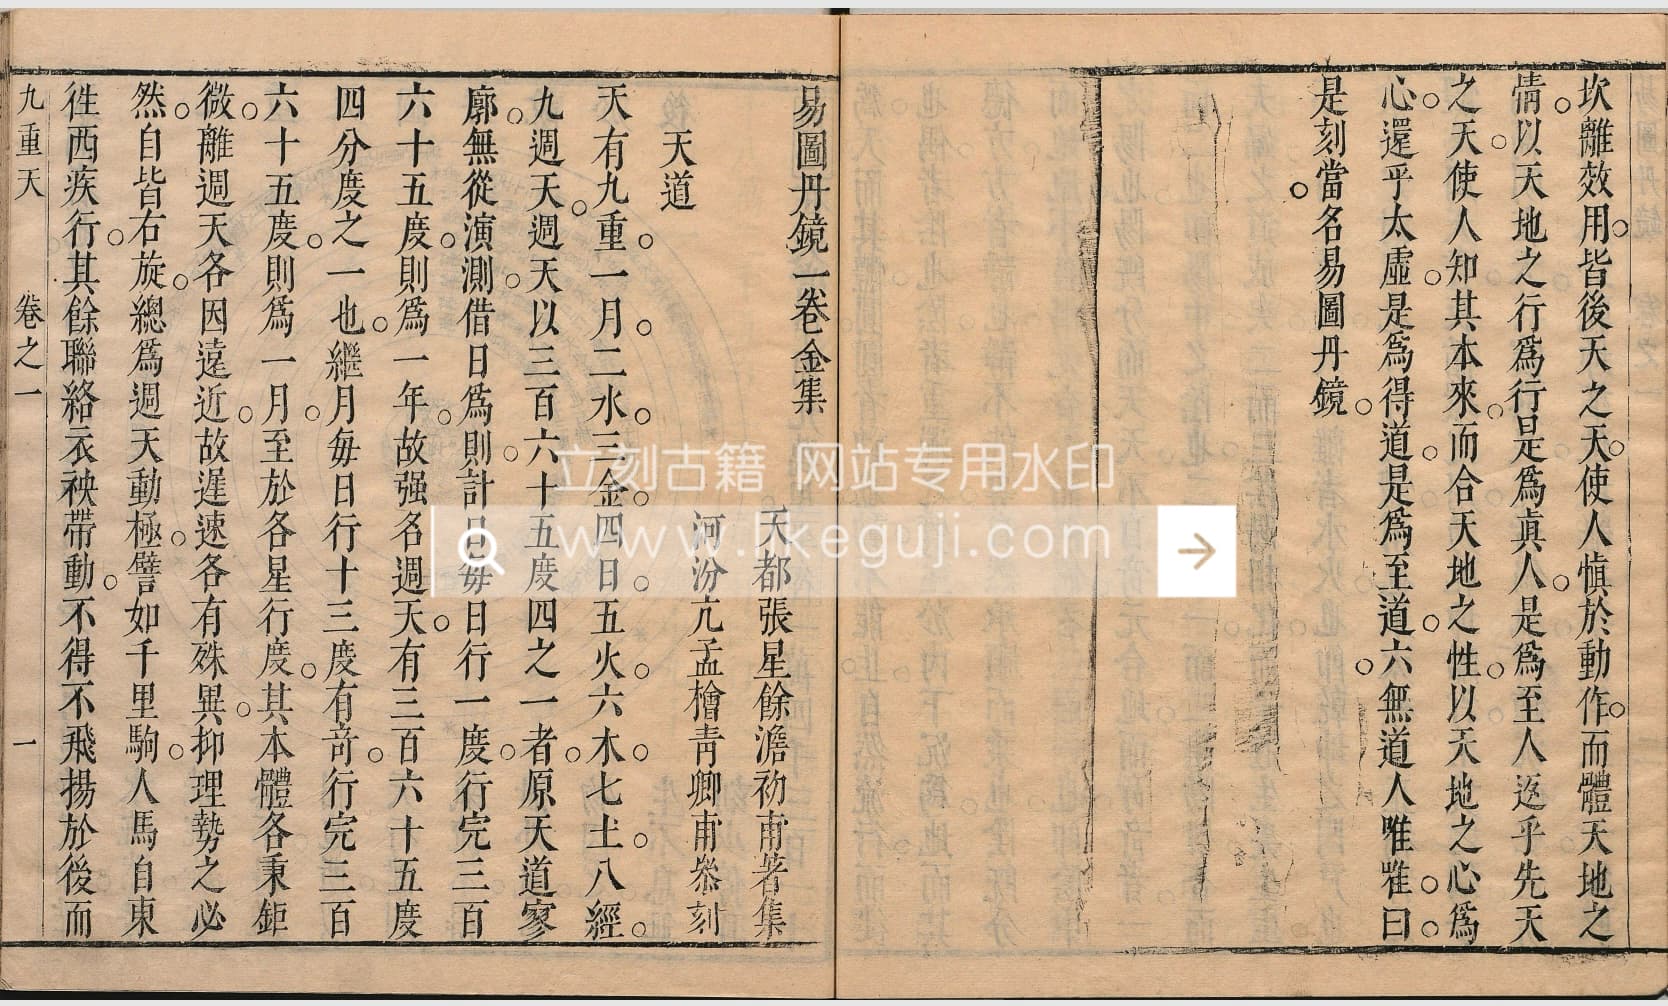 坎離效用皆後天之天使人慎於動作而體天地之
情以天地之行為行是為真人是為至人返乎先天
之天使人知其本來而合天地之性以天地之心為
心還乎太虛是為得道是為至道六無道人唯唯曰
是刻當名易圖丹鏡
易圖丹鏡一卷金集
天都張星餘澹初甫著集
河汾亢孟檜青卿甫叅刻
天道
天有九重一月二水三金四日五火六木七土八經
九週天週天以三百六十五度四之一者原天道寥
廓無從演測借日為則計日每日行一度行完三百
六十五度則為一年故强名週天有三百六十五度
四分度之一也繼月每日行十三度有竒行完三百
六十五度則為一月至於各星行度其本體各秉鉅
微離週天各因遠近故遲速各有殊異抑理勢之必
然自皆右旋總為週天動極譬如千里駒人馬自東
徃西疾行其餘聯絡衣袂帶動不得不飛揚於後而
九重天 卷之一 一
立刻古籍 网站专用水印
www.lkeguji.com